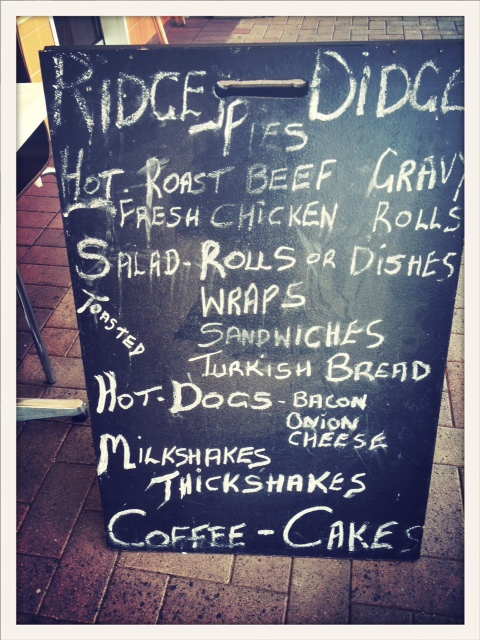 RIDGE DIDGE
PIES
HOT. ROAST BEEF GRAVY
FRESH CHICKEN ROLLS
SALAD-ROLLS OR DISHES
WRAPS
TOASTED
SANDWICHES
TURKISH BREAD
HOT-DOGS - BACON
ONION
CHEESE
MILKSHAKES
THICKSHAKES
COFFEE - CAKES